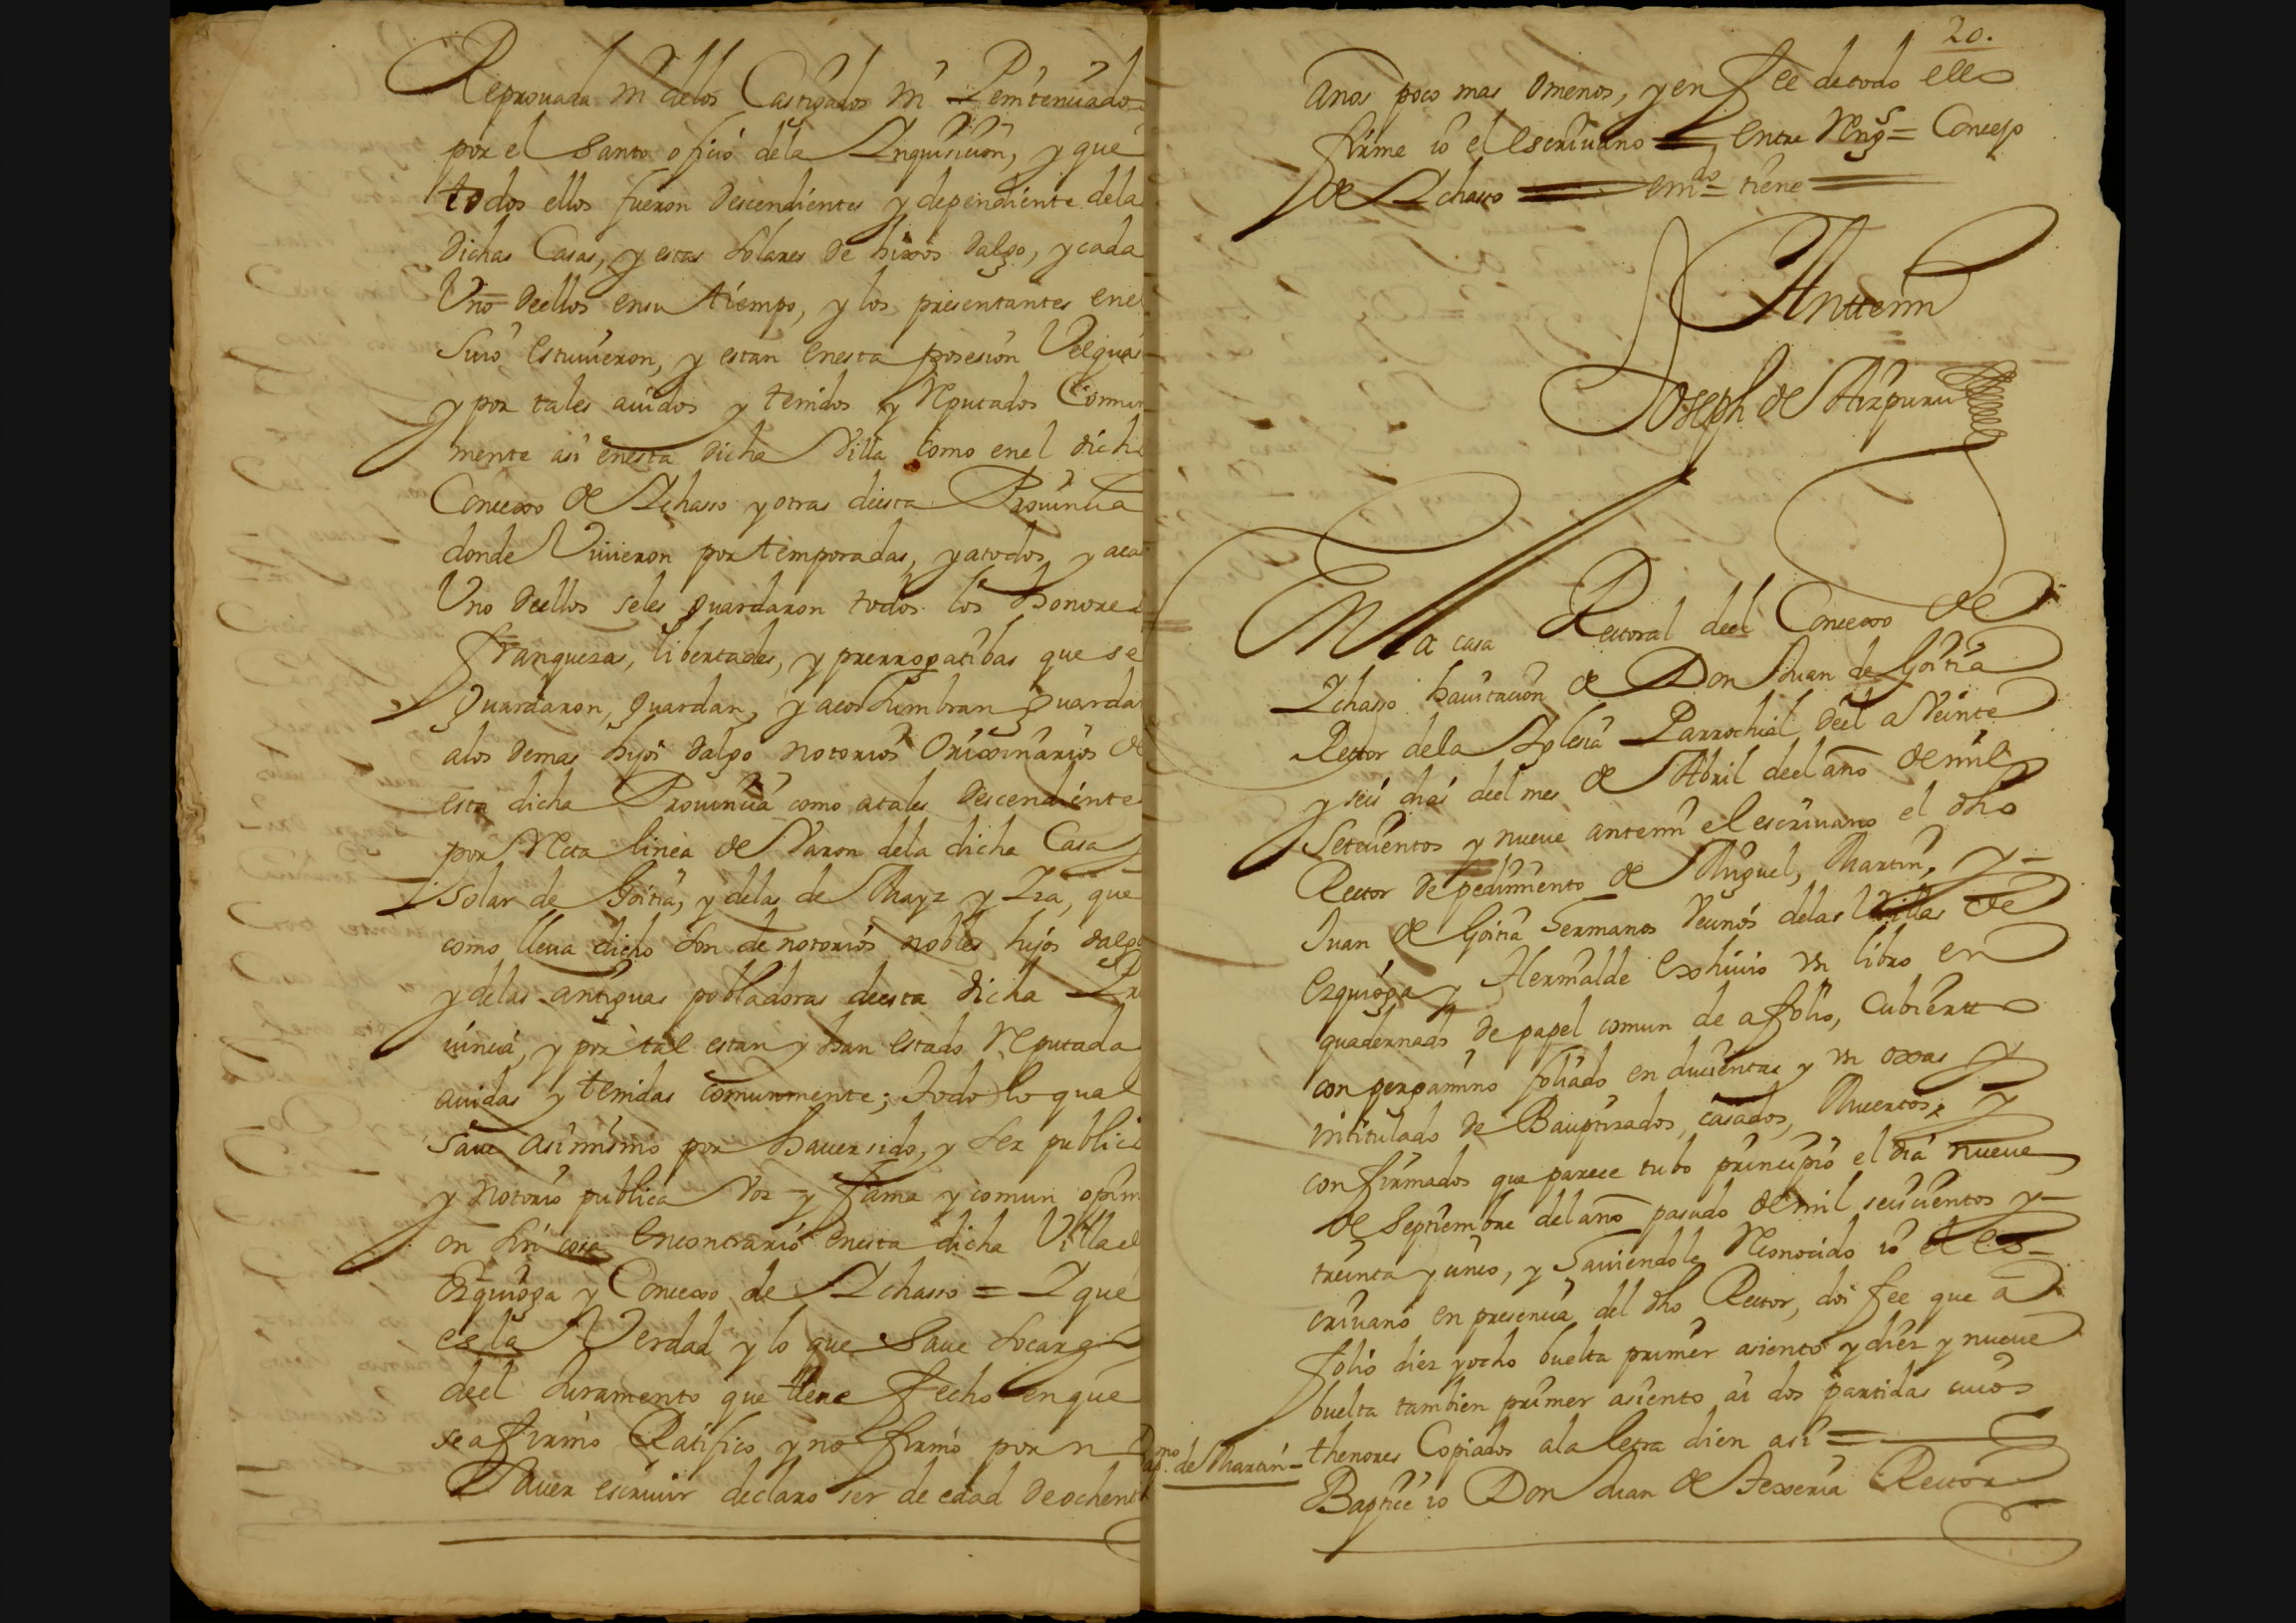 Reprouada ni delos Castigados ni Penitenciados
por el Santo oficio dela Inquisicion, y que
todos ellos fueron descendientes y dependiente dela
dichas Casas, y estas solares de hixos dalgo, y cada
Vno deellos ensu tiempo, y los presentantes enel
Suio estuuieron, y estan enesta posesion Velquasi
y por tales auidos y tenidos y Reputados Comun
mente asi enesta dicha Villa como enel dicho
Concexo de Ichasso y otras deesta Prouincia
donde Viuieron por temporadas, y atodos y aca
Vno deellos seles guardaron todos los honores
franquezas, libertades, y prerrogatibas que se
guardaron, guardan, y acostumbran guardar
alos demas hijos dalgo notorios Orixinarios de
esta dicha Prouincia como atales descendientes
por Recta linea de Varon dela dicha Casa
Solar de Goitia, y delas de Mayz y Iza, que
como lleua dicho son de notorios nobles hijos dalgo
y delas antiguas pobladoras deesta dicha Pro
uincia, y por tal estan y han estado Reputada
auidas y tenidas comunmente; todo lo qual
saue asimismo por hauer sido, y ser publico
y notorio publica Voz y fama y comun opini
on sin cosa encontrario enesta dicha Villa de
Ezquioga y Concexo de Ichasso = I que
es la Verdad y lo que saue socargo
deel Juramento que tiene fecho enque
se afirmo Ratifico y no firmo por no
Sauer escriuir declaro ser de edad deochenta
20.
años poco mas omenos, y en fee detodo ello
firme io el escriuano = entre Rengs = Concejo
de Ichasso = emdo = tiene
Anttemi
Joseph de Aizpuru
En la casa Rectoral deel Concexo de
Ichasso hauitacion de Don Juan de Goitia
Rector dela Iglesia Parrochial deel a Veinte
y seis dias deel mes de Abril deel año demil
Setecientos y nueue antemi el escriuano el dho
Rector de pedimiento de Miguel, Martin, y
Juan de Goitia hermanos Vecinos delas Villas de
Ezquioga y Hermalde exhiuio vn libro en
quadernado de papel comun de afolio, Cubierto
con pergamino foliado en ducientas y vn oxas
intitulado de Bauptizados, casados, Muertos, y
confirmados que parece tubo principio el dia nueue
de Septiembre del año pasado demil seiscientos y
treinta y unco, y hauiendole Reconocido io el es-
criuano en presencia del dho Rector, doi fee que a
folio diez yocho buelta primer asiento y diez y nueue
buelta tambien primer asiento ai dos partidas cuios
thenores Copiados ala letra dicen asi =
Bapmo de Martin =
Baptice io Don Juan de Texeria Rector